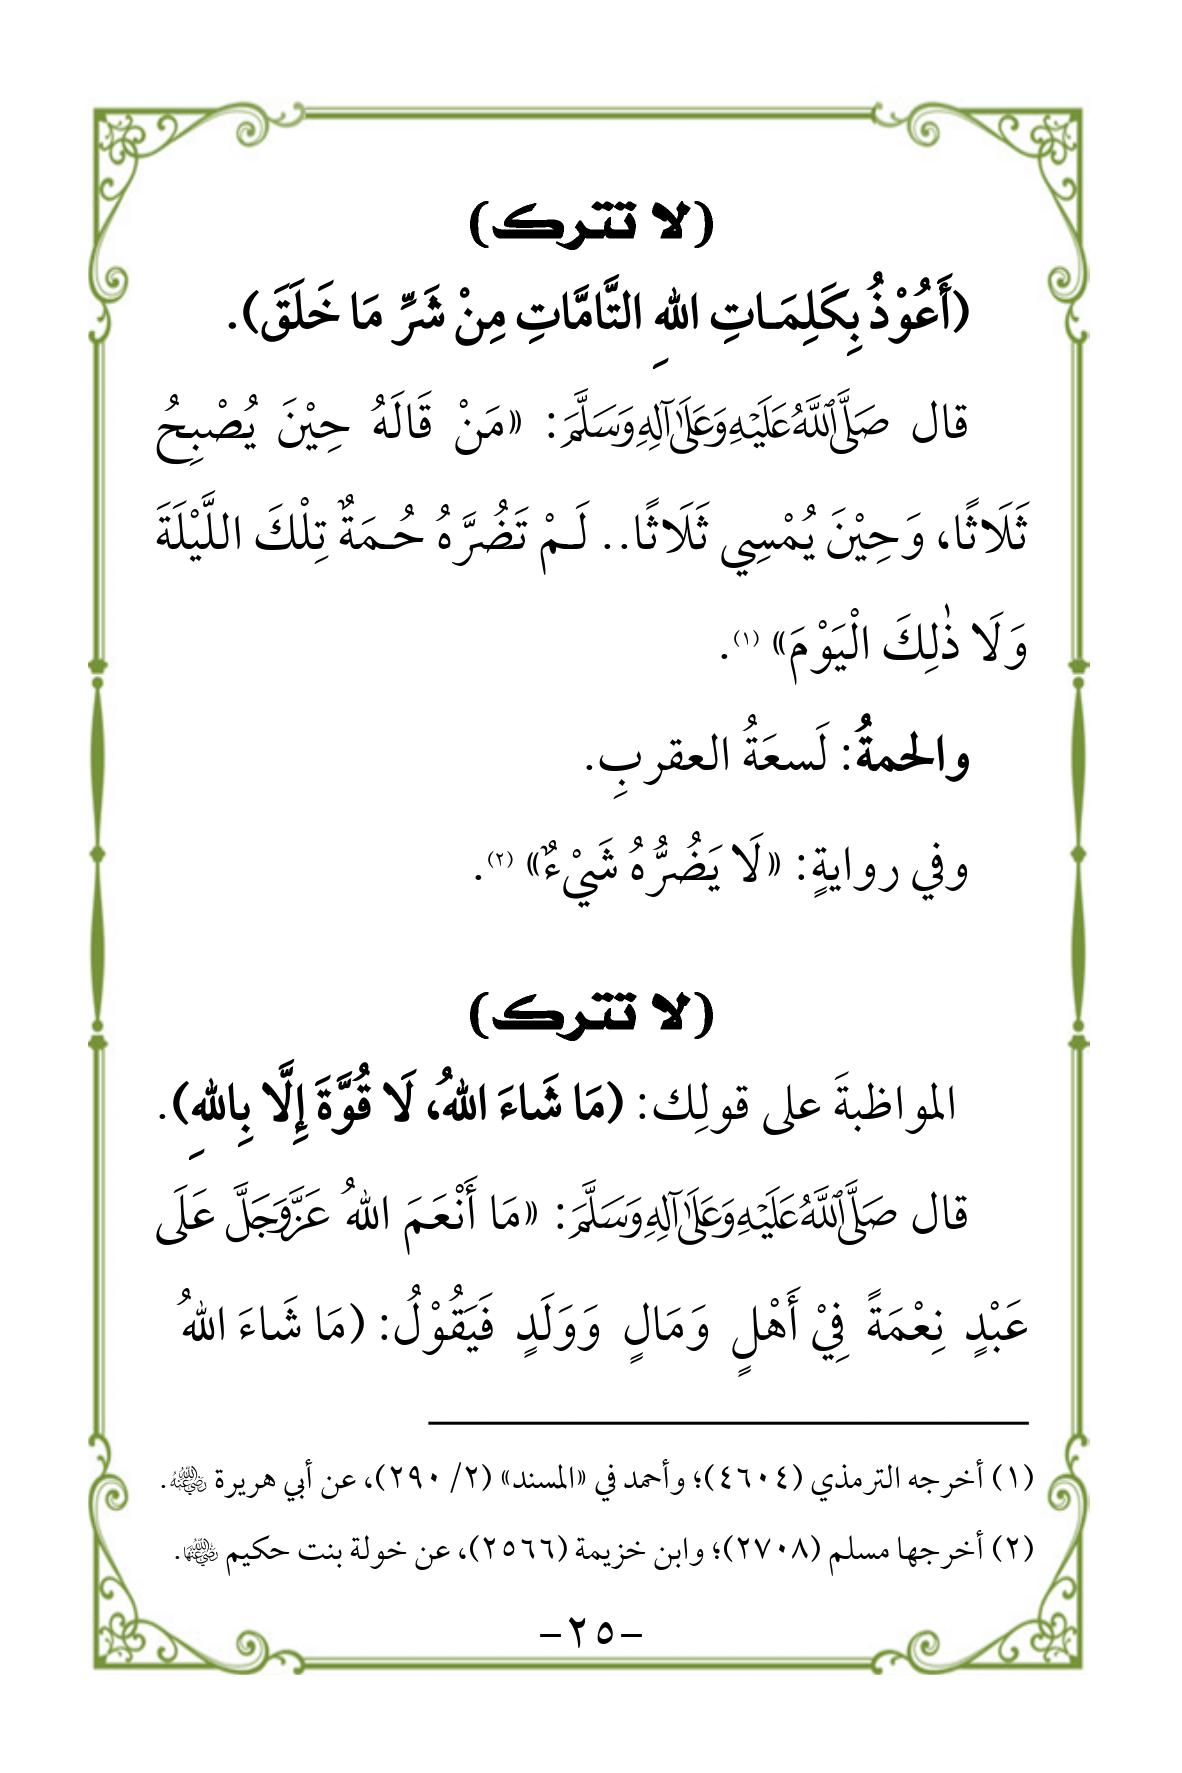 (لا تترك)
(أَعُوْذُ بِكَلِمَـاتِ اللهِ التَّامَّاتِ مِنْ شَرِّ مَا خَلَقَ).
قال صَلَّىٱللَّهُعَلَيْهِوَعَلَىٰآلِهِوَسَلَّمَ: «مَنْ قَالَهُ حِيْنَ يُصْبِحُ
ثَلَاثًا، وَحِيْنَ يُمْسِي ثَلَاثًا.. لَـمْ تَضُرَّهُ حُـمَةٌ تِلْكَ اللَّيْلَةَ
وَلَا ذٰلِكَ الْيَوْمَ» (١).
والحمةُ: لَسعَةُ العقربِ.
وفي روايةٍ: «لَا يَضُرُّهُ شَيْءٌ» (٢).
(لا تترك)
المواظبةَ على قولِك: (مَا شَاءَ اللهُ، لَا قُوَّةَ إِلَّا بِاللهِ).
قال صَلَّىٱللَّهُعَلَيْهِوَعَلَىٰآلِهِوَسَلَّمَ: «مَا أَنْعَمَ اللهُ عَزَّوَجَلَّ عَلَى
عَبْدٍ نِعْمَةً فِيْ أَهْلٍ وَمَالٍ وَوَلَدٍ فَيَقُوْلُ: (مَا شَاءَ اللهُ
(١) أخرجه الترمذي (٤٦٠٤)؛ وأحمد في «المسند» (٢/ ٢٩٠)، عن أبي هريرة رَضِيَاللَّهُعَنْهُ.
(٢) أخرجها مسلم (٢٧٠٨)؛ وابن خزيمة (٢٥٦٦)، عن خولة بنت حكيم رَضِيَاللَّهُعَنْهَا.
–٢٥–